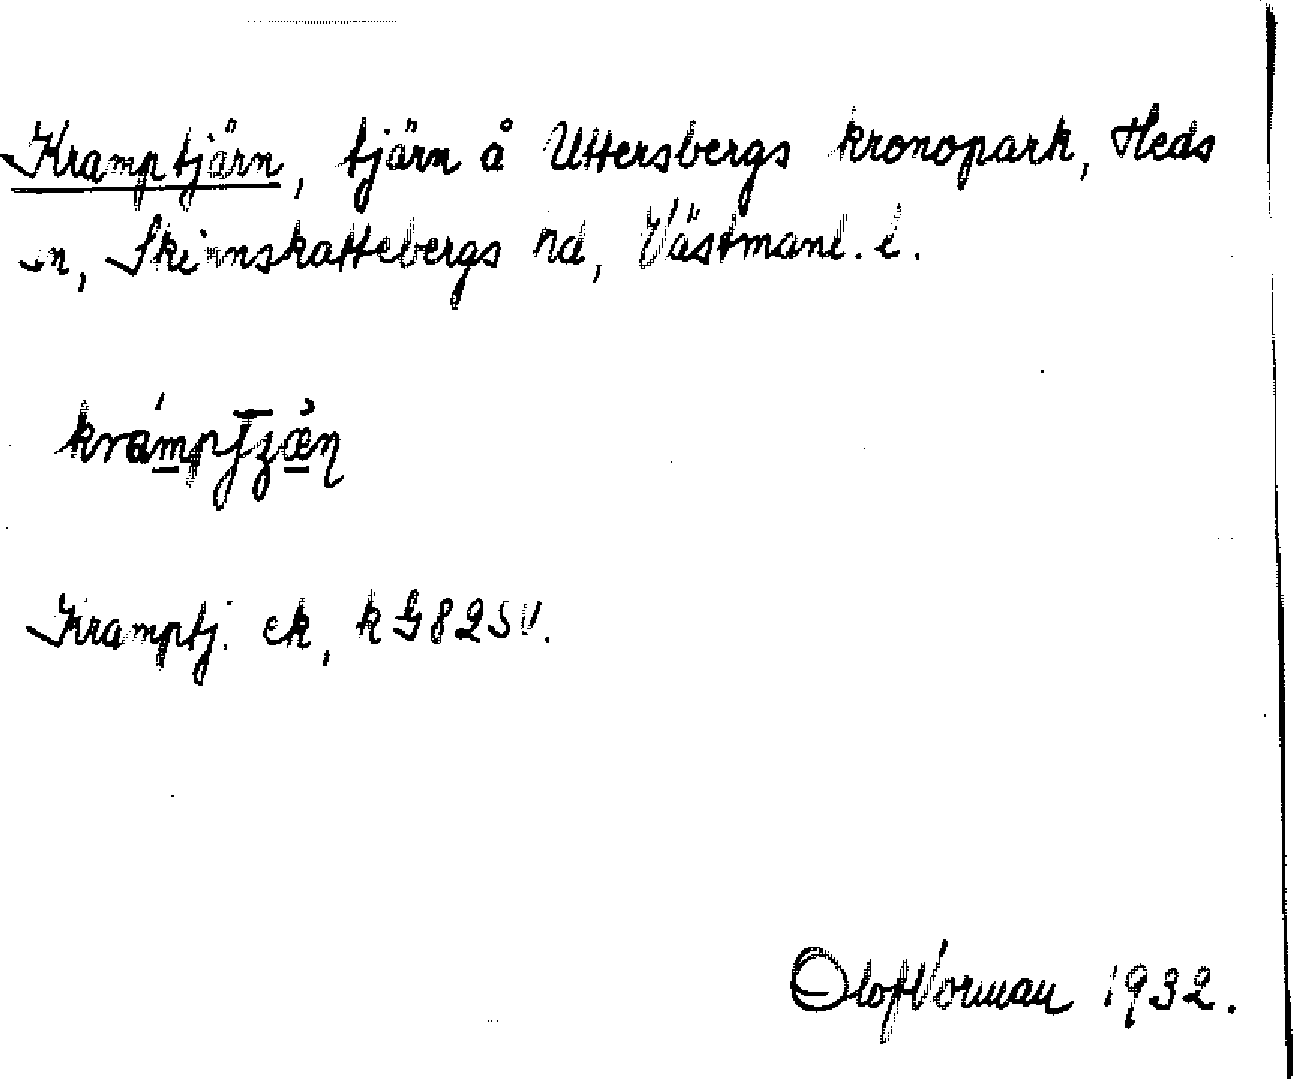 Kramptjärn, tjärn å Uttersbergs kronopark, Heds
sn, Skinnskattebergs hd, Västmanl. l.
Kramptj. ek, k G 82 SV.
Olof Vorman 1932.